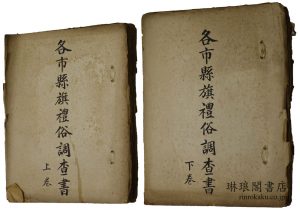 各市縣旗禮俗調查書
上卷
各市縣旗禮俗調查書
下卷
琳琅閣書店
rinrokaku.co.jp